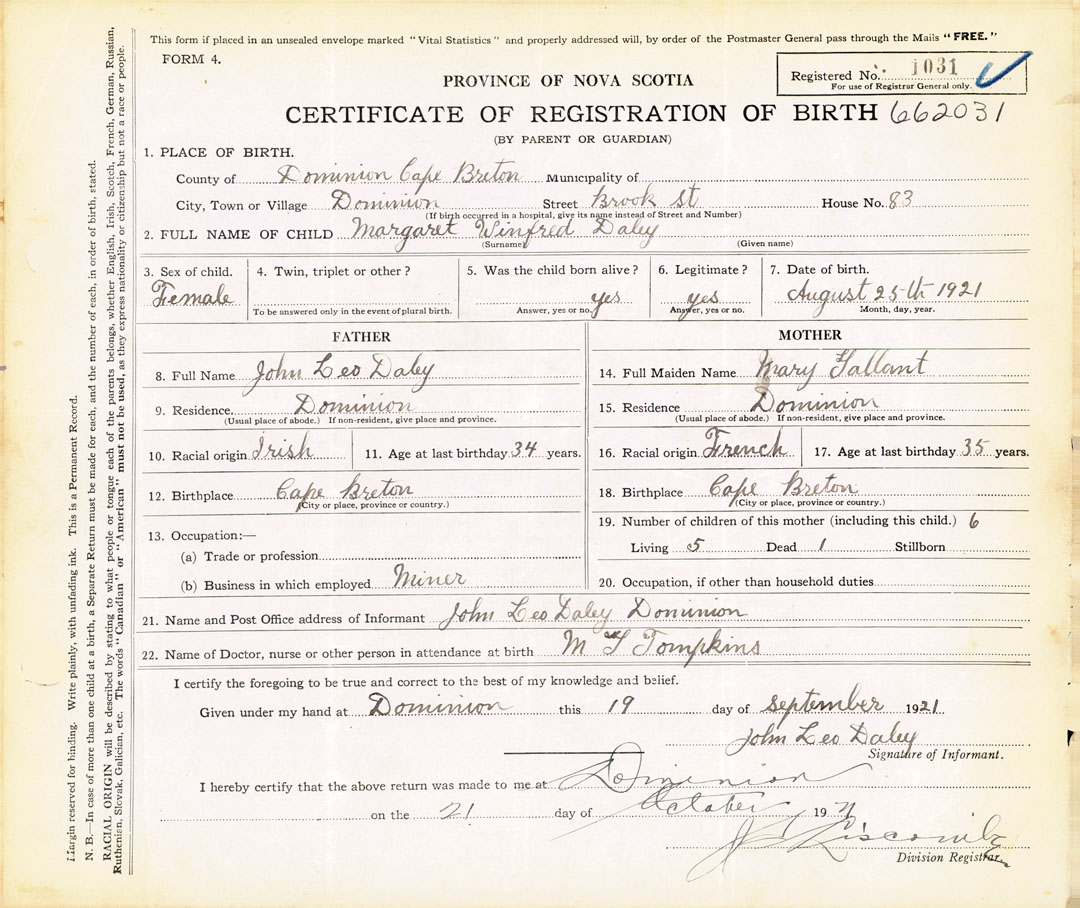 This form if placed in an unsealed envelope marked "Vital Statistics" and properly addressed will, by order of the Postmaster General pass through the Mails "FREE."
FORM 4.
Registered No. 1031
For use of Registrar General only.
PROVINCE OF NOVA SCOTIA
CERTIFICATE OF REGISTRATION OF BIRTH 662031
(BY PARENT OR GUARDIAN)
1. PLACE OF BIRTH.
County of Dominion Cape Breton Municipality of
City, Town or Village Dominion Street Brook St House No. 83
(If birth occurred in a hospital, give its name instead of Street and Number)
2. FULL NAME OF CHILD Margaret Winfred Daley
(Surname) (Given name)
3. Sex of child. 4. Twin, triplet or other? 5. Was the child born alive? 6. Legitimate? 7. Date of birth.
Female yes yes August 25th 1921
To be answered only in the event of plural birth. Answer, yes or no. Answer, yes or no. Month, day, year.
FATHER
8. Full Name John Leo Daley
9. Residence. Dominion
(Usual place of abode.) If non-resident, give place and province.
10. Racial origin Irish 11. Age at last birthday 34 years.
12. Birthplace Cape Breton
(City or place, province or country.)
13. Occupation:—
(a) Trade or profession
(b) Business in which employed Miner
MOTHER
14. Full Maiden Name Mary Gallant
15. Residence Dominion
(Usual place of abode.) If non-resident, give place and province.
16. Racial origin French 17. Age at last birthday 35 years.
18. Birthplace Cape Breton
(City or place, province or country.)
19. Number of children of this mother (including this child.) 6
Living 5 Dead 1 Stillborn
20. Occupation, if other than household duties
21. Name and Post Office address of Informant John Leo Daley Dominion
22. Name of Doctor, nurse or other person in attendance at birth M Tompkins
I certify the foregoing to be true and correct to the best of my knowledge and belief.
Given under my hand at Dominion this 19 day of September 1921
John Leo Daley
Signature of Informant.
I hereby certify that the above return was made to me at Dominion
on the 21 day of October 1921
Liscomb
Division Registrar.
Margin reserved for binding. Write plainly, with unfading ink. This is a Permanent Record.
N. B.—In case of more than one child at a birth, a Separate Return must be made for each, and the number of each, in order of birth, stated.
RACIAL ORIGIN will be described by stating to what people or tongue each of the parents belongs, whether English, Irish, Scotch, French, German, Russian,
Ruthenian, Slovak, Galician, etc. The words "Canadian" or "American" must not be used, as they express nationality or citizenship but not a race or people.